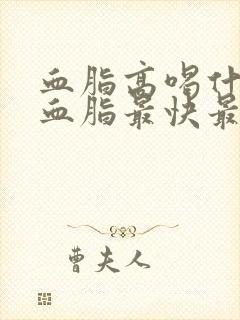 血脂高喝什
血脂最快最
曹夫人